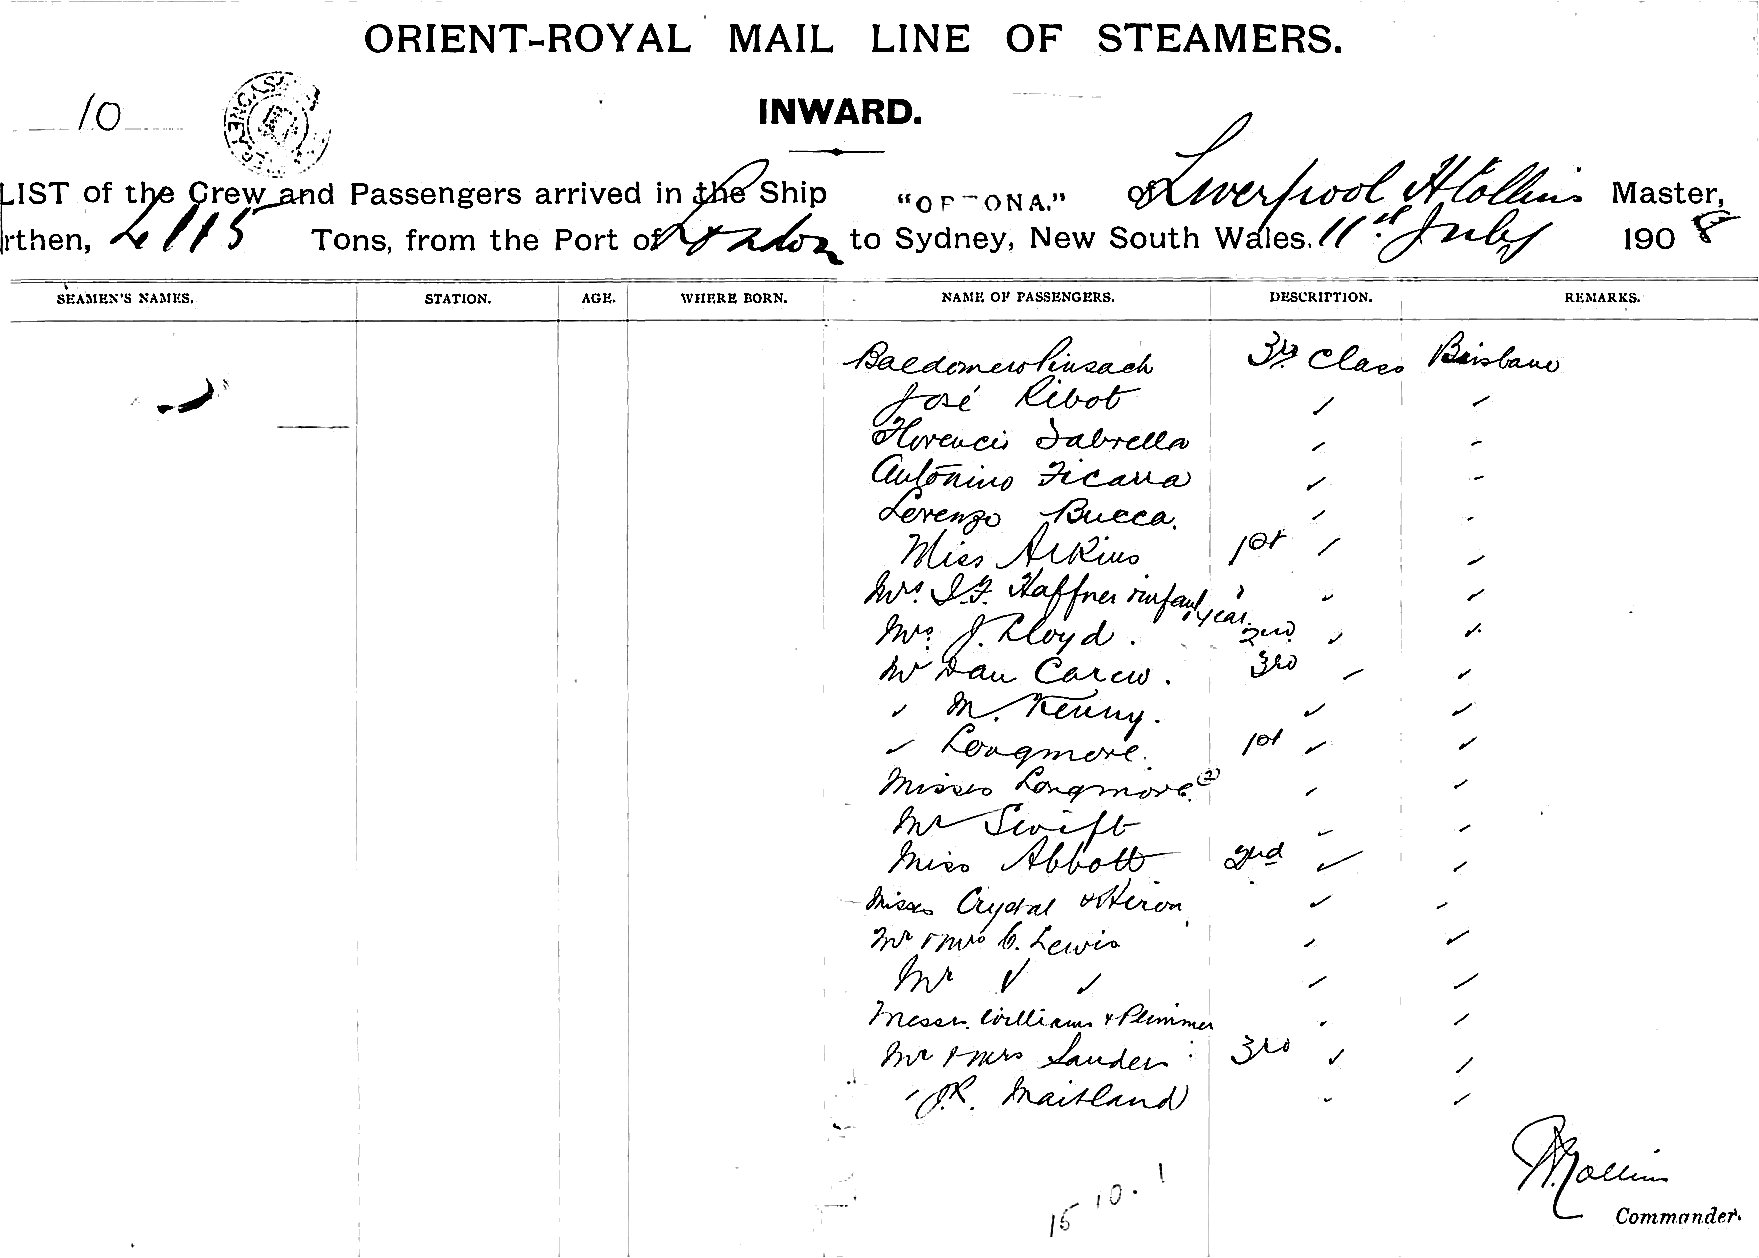 ORIENT-ROYAL MAIL LINE OF STEAMERS.
10
INWARD.
LIST of the Crew and Passengers arrived in the Ship "OPTONA." of Liverpool A Collins Master,
rthen, 4115 Tons, from the Port of London to Sydney, New South Wales. 11th July 1908
SEAMEN'S NAMES. STATION. AGE. WHERE BORN. NAME OF PASSENGERS. DESCRIPTION. REMARKS.
Baldomero Pinsach 3rd Class Brisbane
José Ribot
Florencis Sabrella
Antonino Ficarra
Lorenzo Bucca.
Miss Atkins 1st
Mrs. I.F. Haffner & infant 1 year.
Mrs. J. Lloyd. 2nd
Mr Dan Carew. 3rd
" M. Kenny.
" Longmore. 1st
Misses Longmore (2)
Mr Swift
Miss Abbott 2nd
Misses Crystal & Heron
Mr & Mrs C. Lewis
Mr " "
Messrs. Williams & Plimmer
Mr & Mrs Sauder 3rd
" J.R. Maitland
15 10. 1
A. Collins
Commander.